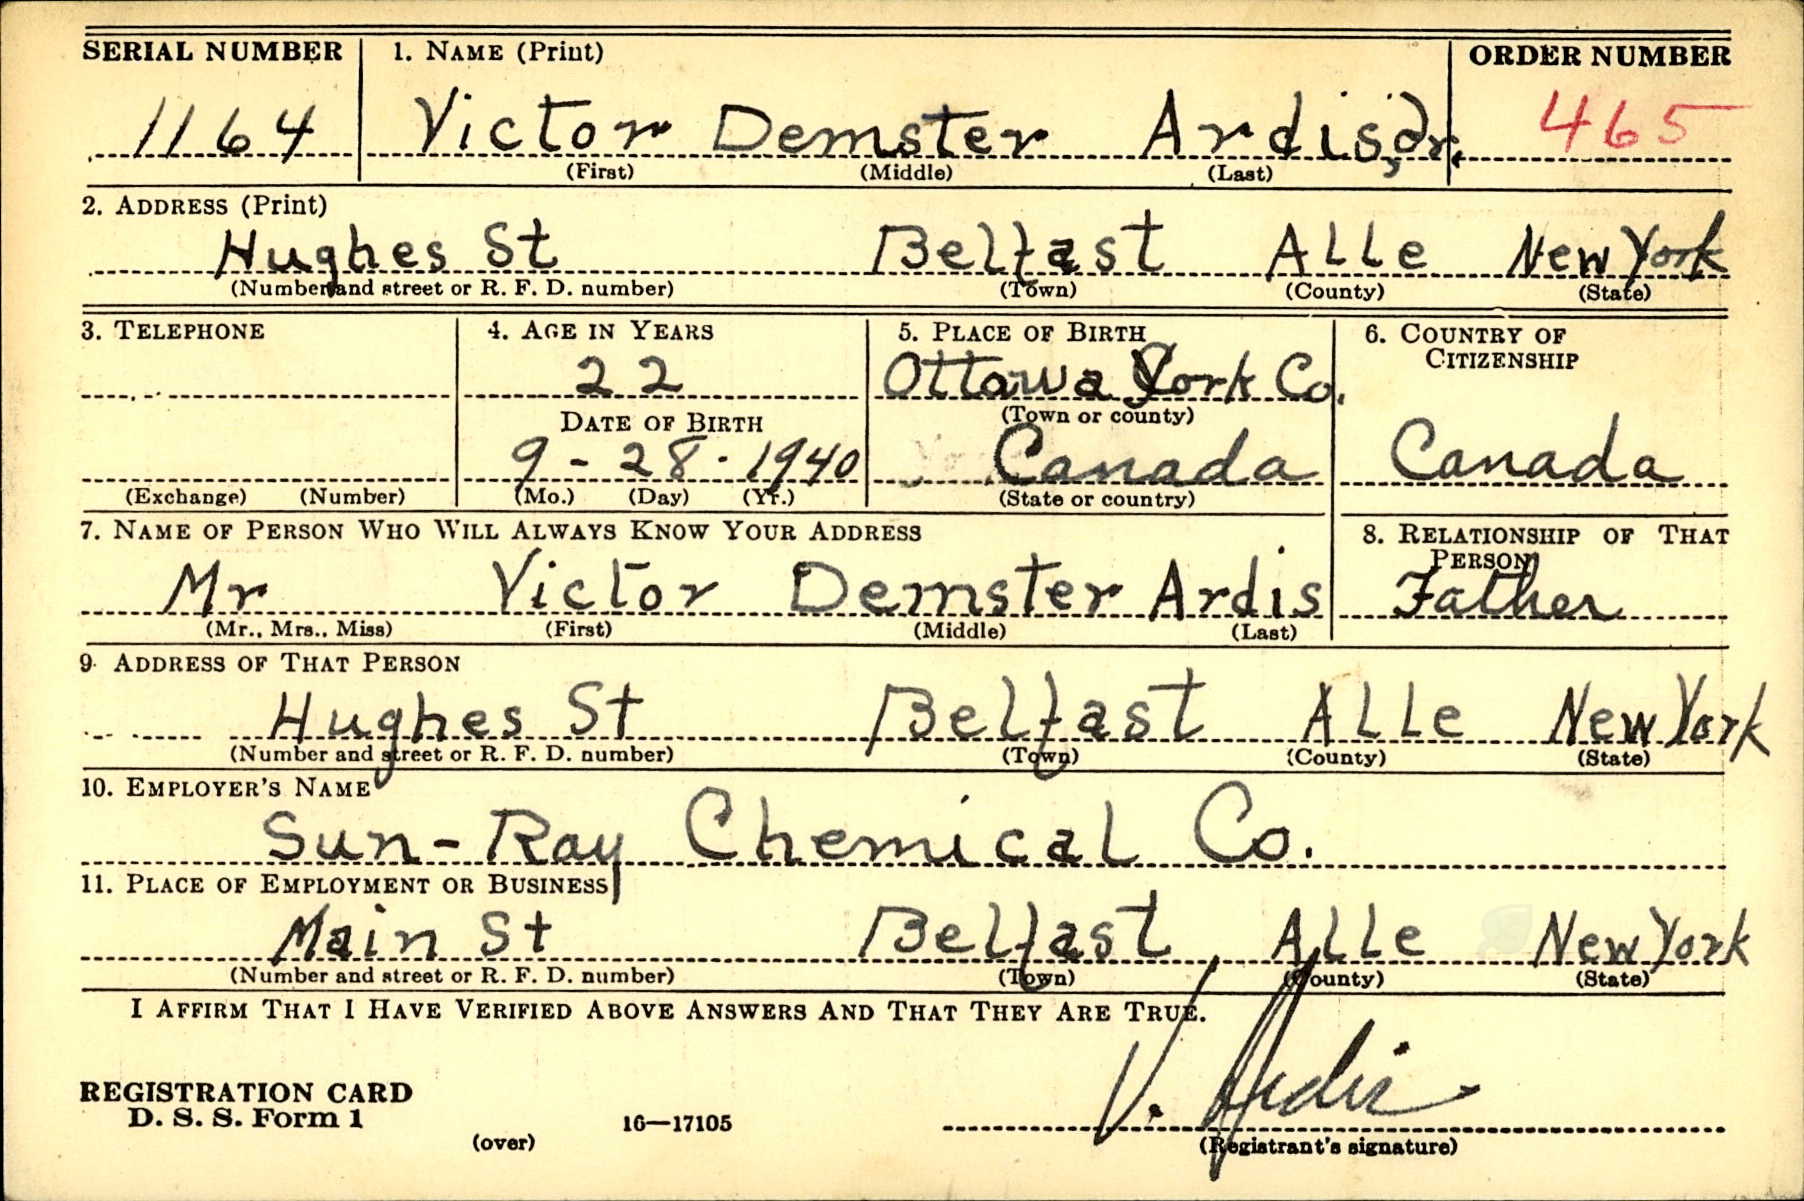 SERIAL NUMBER 1. NAME (Print) ORDER NUMBER
1164 Victor Demster Ardis, Jr. 465
(First) (Middle) (Last)
2. ADDRESS (Print)
Hughes St Belfast ALLe New York
(Number and street or R. F. D. number) (Town) (County) (State)
3. TELEPHONE 4. AGE IN YEARS 5. PLACE OF BIRTH 6. COUNTRY OF
CITIZENSHIP
22 Ottawa York Co.
DATE OF BIRTH (Town or county)
9 - 28 - 1940 Canada Canada
(Exchange) (Number) (Mo.) (Day) (Yr.) (State or country)
7. NAME OF PERSON WHO WILL ALWAYS KNOW YOUR ADDRESS 8. RELATIONSHIP OF THAT
PERSON
Mr Victor Demster Ardis Father
(Mr., Mrs., Miss) (First) (Middle) (Last)
9. ADDRESS OF THAT PERSON
Hughes St Belfast ALLe New York
(Number and street or R. F. D. number) (Town) (County) (State)
10. EMPLOYER'S NAME
Sun-Ray Chemical Co.
11. PLACE OF EMPLOYMENT OR BUSINESS
Main St Belfast ALLe New York
(Number and street or R. F. D. number) (Town) (County) (State)
I AFFIRM THAT I HAVE VERIFIED ABOVE ANSWERS AND THAT THEY ARE TRUE.
V. Ardis
REGISTRATION CARD
D. S. S. Form 1 16—17105
(over) (Registrant's signature)